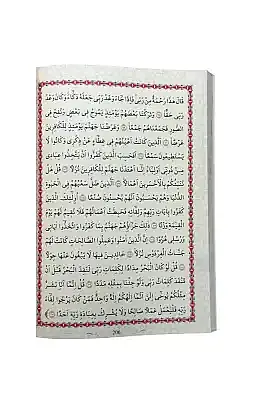 قَالَ هَذَا رَحْمَةٌ مِنْ رَبِّي فَإِذَا جَاءَ وَعْدُ رَبِّي جَعَلَهُ دَكَّاءَ وَكَانَ وَعْدُ
رَبِّي حَقًّا ۝ وَتَرَكْنَا بَعْضَهُمْ يَوْمَئِذٍ يَمُوجُ فِي بَعْضٍ وَنُفِخَ فِي
الصُّورِ فَجَمَعْنَاهُمْ جَمْعًا ۝ وَعَرَضْنَا جَهَنَّمَ يَوْمَئِذٍ لِلْكَافِرِينَ
عَرْضًا ۝ الَّذِينَ كَانَتْ أَعْيُنُهُمْ فِي غِطَاءٍ عَنْ ذِكْرِي وَكَانُوا لَا
يَسْتَطِيعُونَ سَمْعًا ۝ أَفَحَسِبَ الَّذِينَ كَفَرُوا أَنْ يَتَّخِذُوا عِبَادِي
مِنْ دُونِي أَوْلِيَاءَ إِنَّا أَعْتَدْنَا جَهَنَّمَ لِلْكَافِرِينَ نُزُلًا ۝ قُلْ هَلْ
نُنَبِّئُكُمْ بِالْأَخْسَرِينَ أَعْمَالًا ۝ الَّذِينَ ضَلَّ سَعْيُهُمْ فِي الْحَيٰوةِ
الدُّنْيَا وَهُمْ يَحْسَبُونَ أَنَّهُمْ يُحْسِنُونَ صُنْعًا ۝ أُولَئِكَ الَّذِينَ
كَفَرُوا بِآيَاتِ رَبِّهِمْ وَلِقَائِهِ فَحَبِطَتْ أَعْمَالُهُمْ فَلَا نُقِيمُ لَهُمْ يَوْمَ
الْقِيٰمَةِ وَزْنًا ۝ ذَلِكَ جَزَاؤُهُمْ جَهَنَّمُ بِمَا كَفَرُوا وَاتَّخَذُوا آيَاتِي
وَرُسُلِي هُزُوًا ۝ إِنَّ الَّذِينَ آمَنُوا وَعَمِلُوا الصَّالِحَاتِ كَانَتْ لَهُمْ
جَنَّاتُ الْفِرْدَوْسِ نُزُلًا ۝ خَالِدِينَ فِيهَا لَا يَبْغُونَ عَنْهَا حِوَلًا
۝ قُلْ لَوْ كَانَ الْبَحْرُ مِدَادًا لِكَلِمَاتِ رَبِّي لَنَفِدَ الْبَحْرُ قَبْلَ أَنْ
تَنْفَدَ كَلِمَاتُ رَبِّي وَلَوْ جِئْنَا بِمِثْلِهِ مَدَدًا ۝ قُلْ إِنَّمَا أَنَا بَشَرٌ
مِثْلُكُمْ يُوحَى إِلَيَّ أَنَّمَا إِلَهُكُمْ إِلَهٌ وَاحِدٌ فَمَنْ كَانَ يَرْجُوا لِقَاءَ
رَبِّهِ فَلْيَعْمَلْ عَمَلًا صَالِحًا وَلَا يُشْرِكْ بِعِبَادَةِ رَبِّهِ أَحَدًا ۝